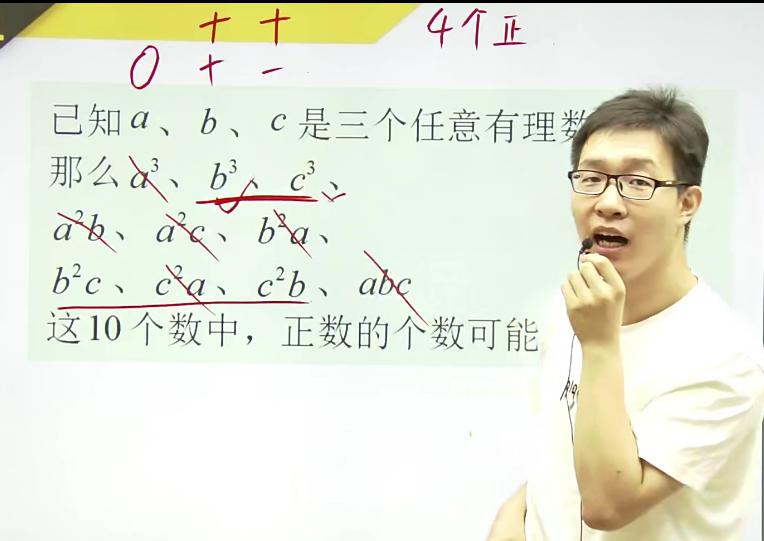 + + 4个正
0 + -
已知a、b、c是三个任意有理数
那么a³、b³、c³、
a²b、a²c、b²a、
b²c、c²a、c²b、abc
这10个数中，正数的个数可能